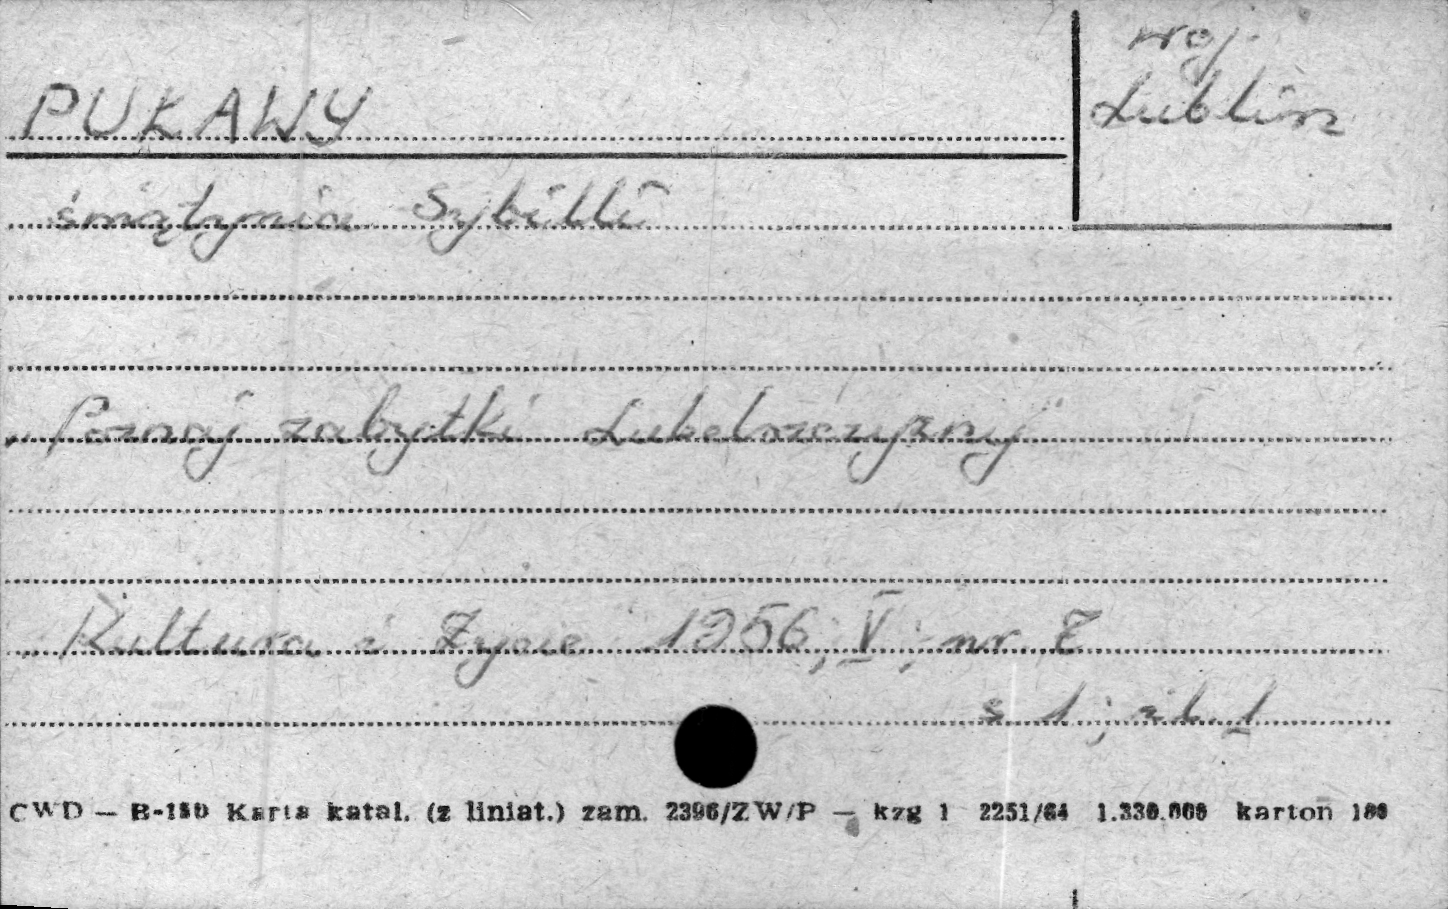 PUŁAWY
woj.
Lublin
świątynia Sybilli
"Poznaj zabytki Lubelszczyzny"
"Kultura i Życie" 1956; V; nr. 7
s. 1; il. 1
CWD — B-150 Karta katal. (z liniat.) zam. 2396/ZW/P — kzg 1 2251/64 1.330.000 karton 180